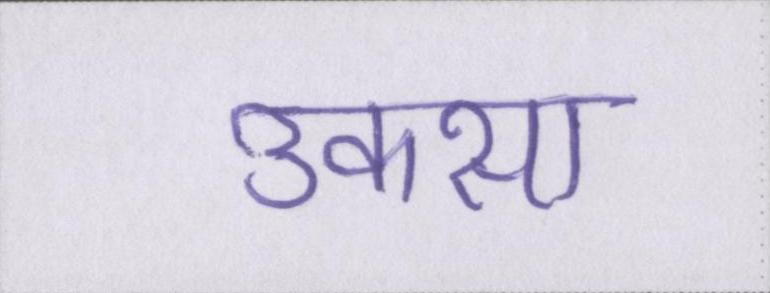 उकसा